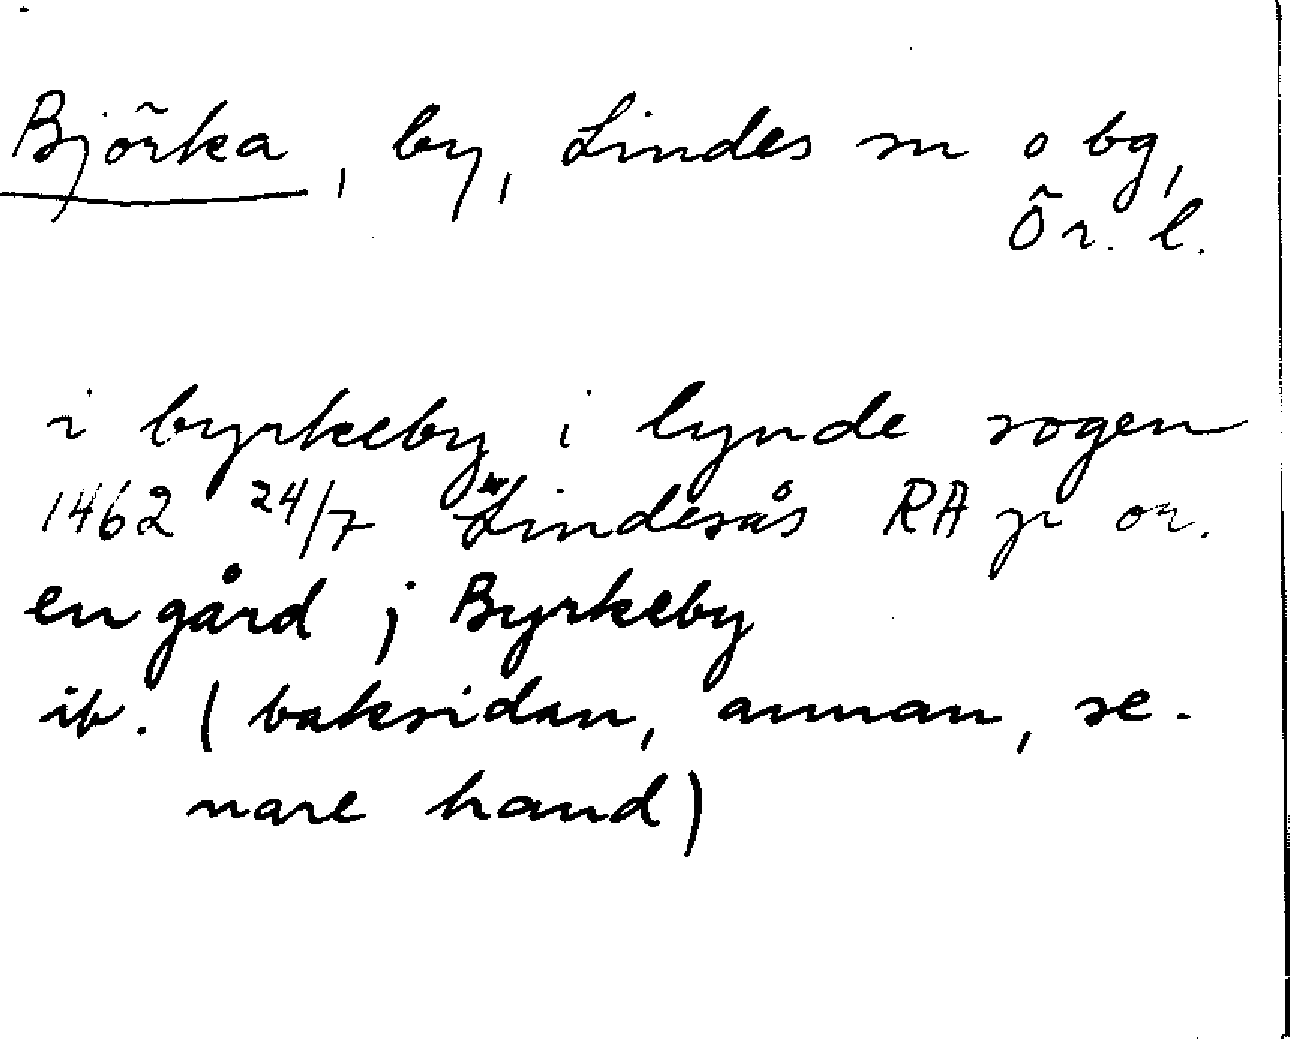 Björka, by, Lindes sn o bg,
Ör. l.
i byrkeby i lynde sogen
1462 24/7 Lindesås RA p or.
en gård i Byrkeby
ib. (baksidan, annan, se-
nare hand)